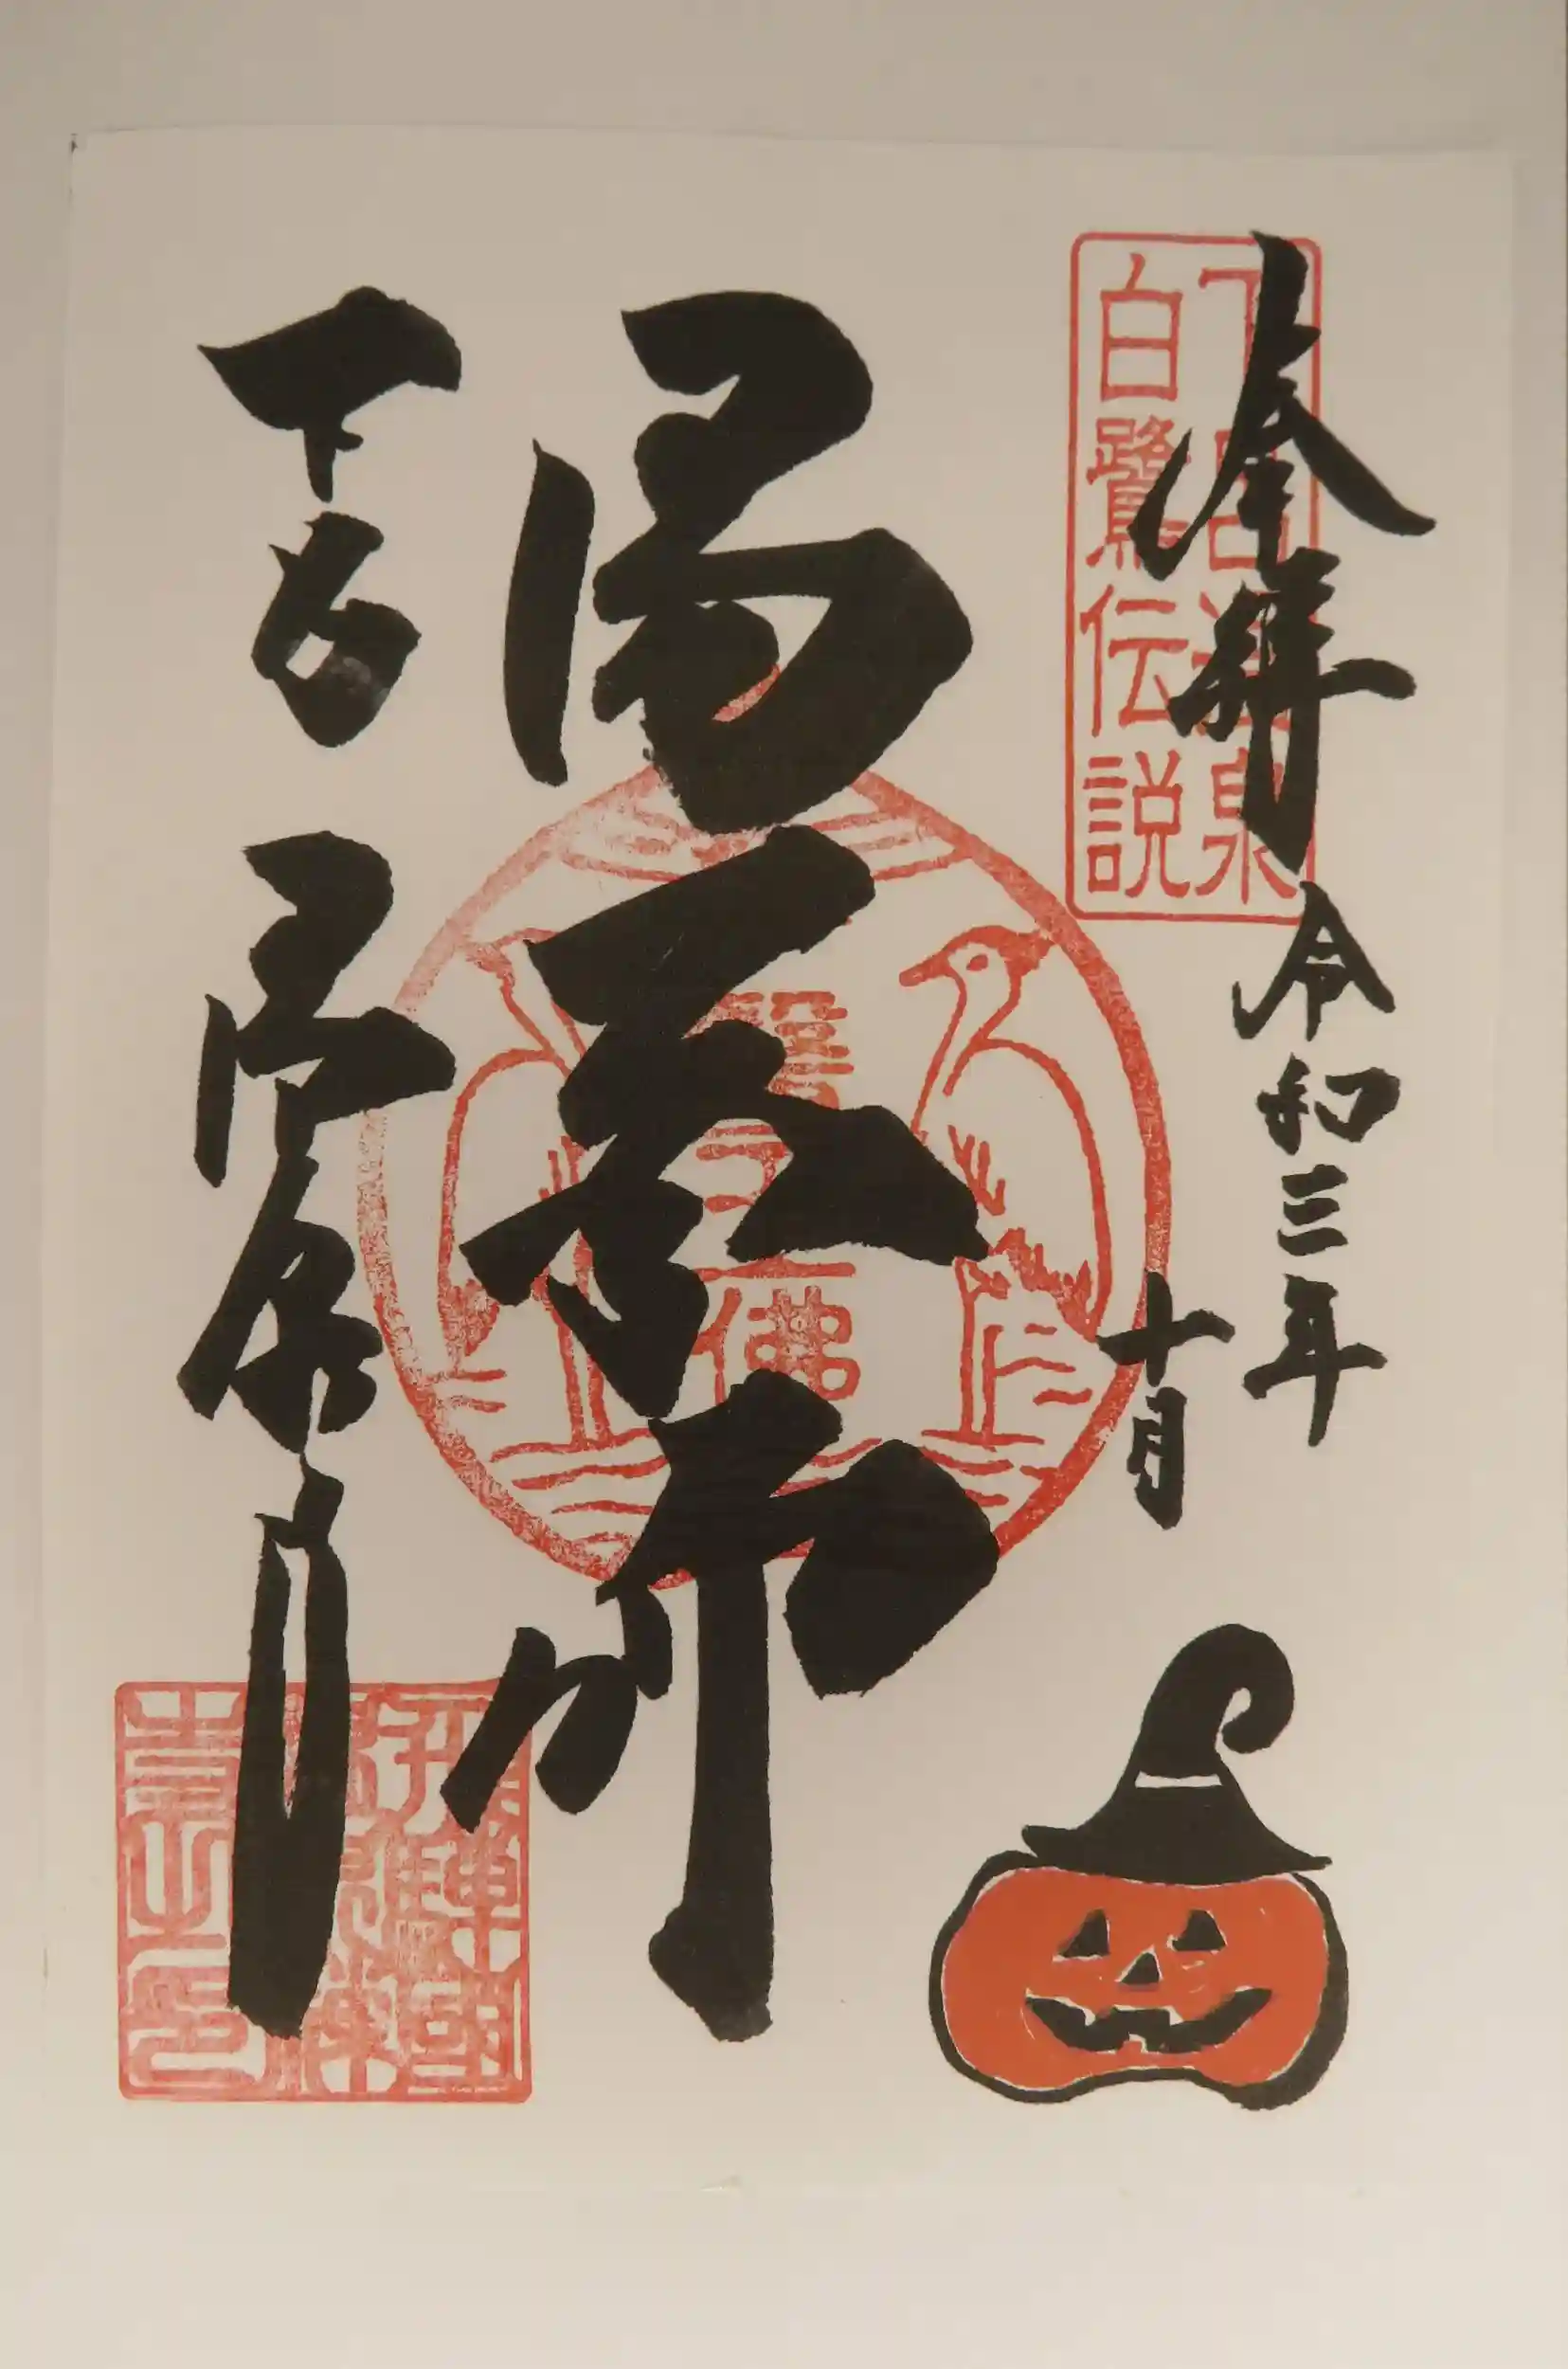 奉拝
令和三年
十月
下呂温泉
白鷺伝説
湯薬師
下呂
温泉寺